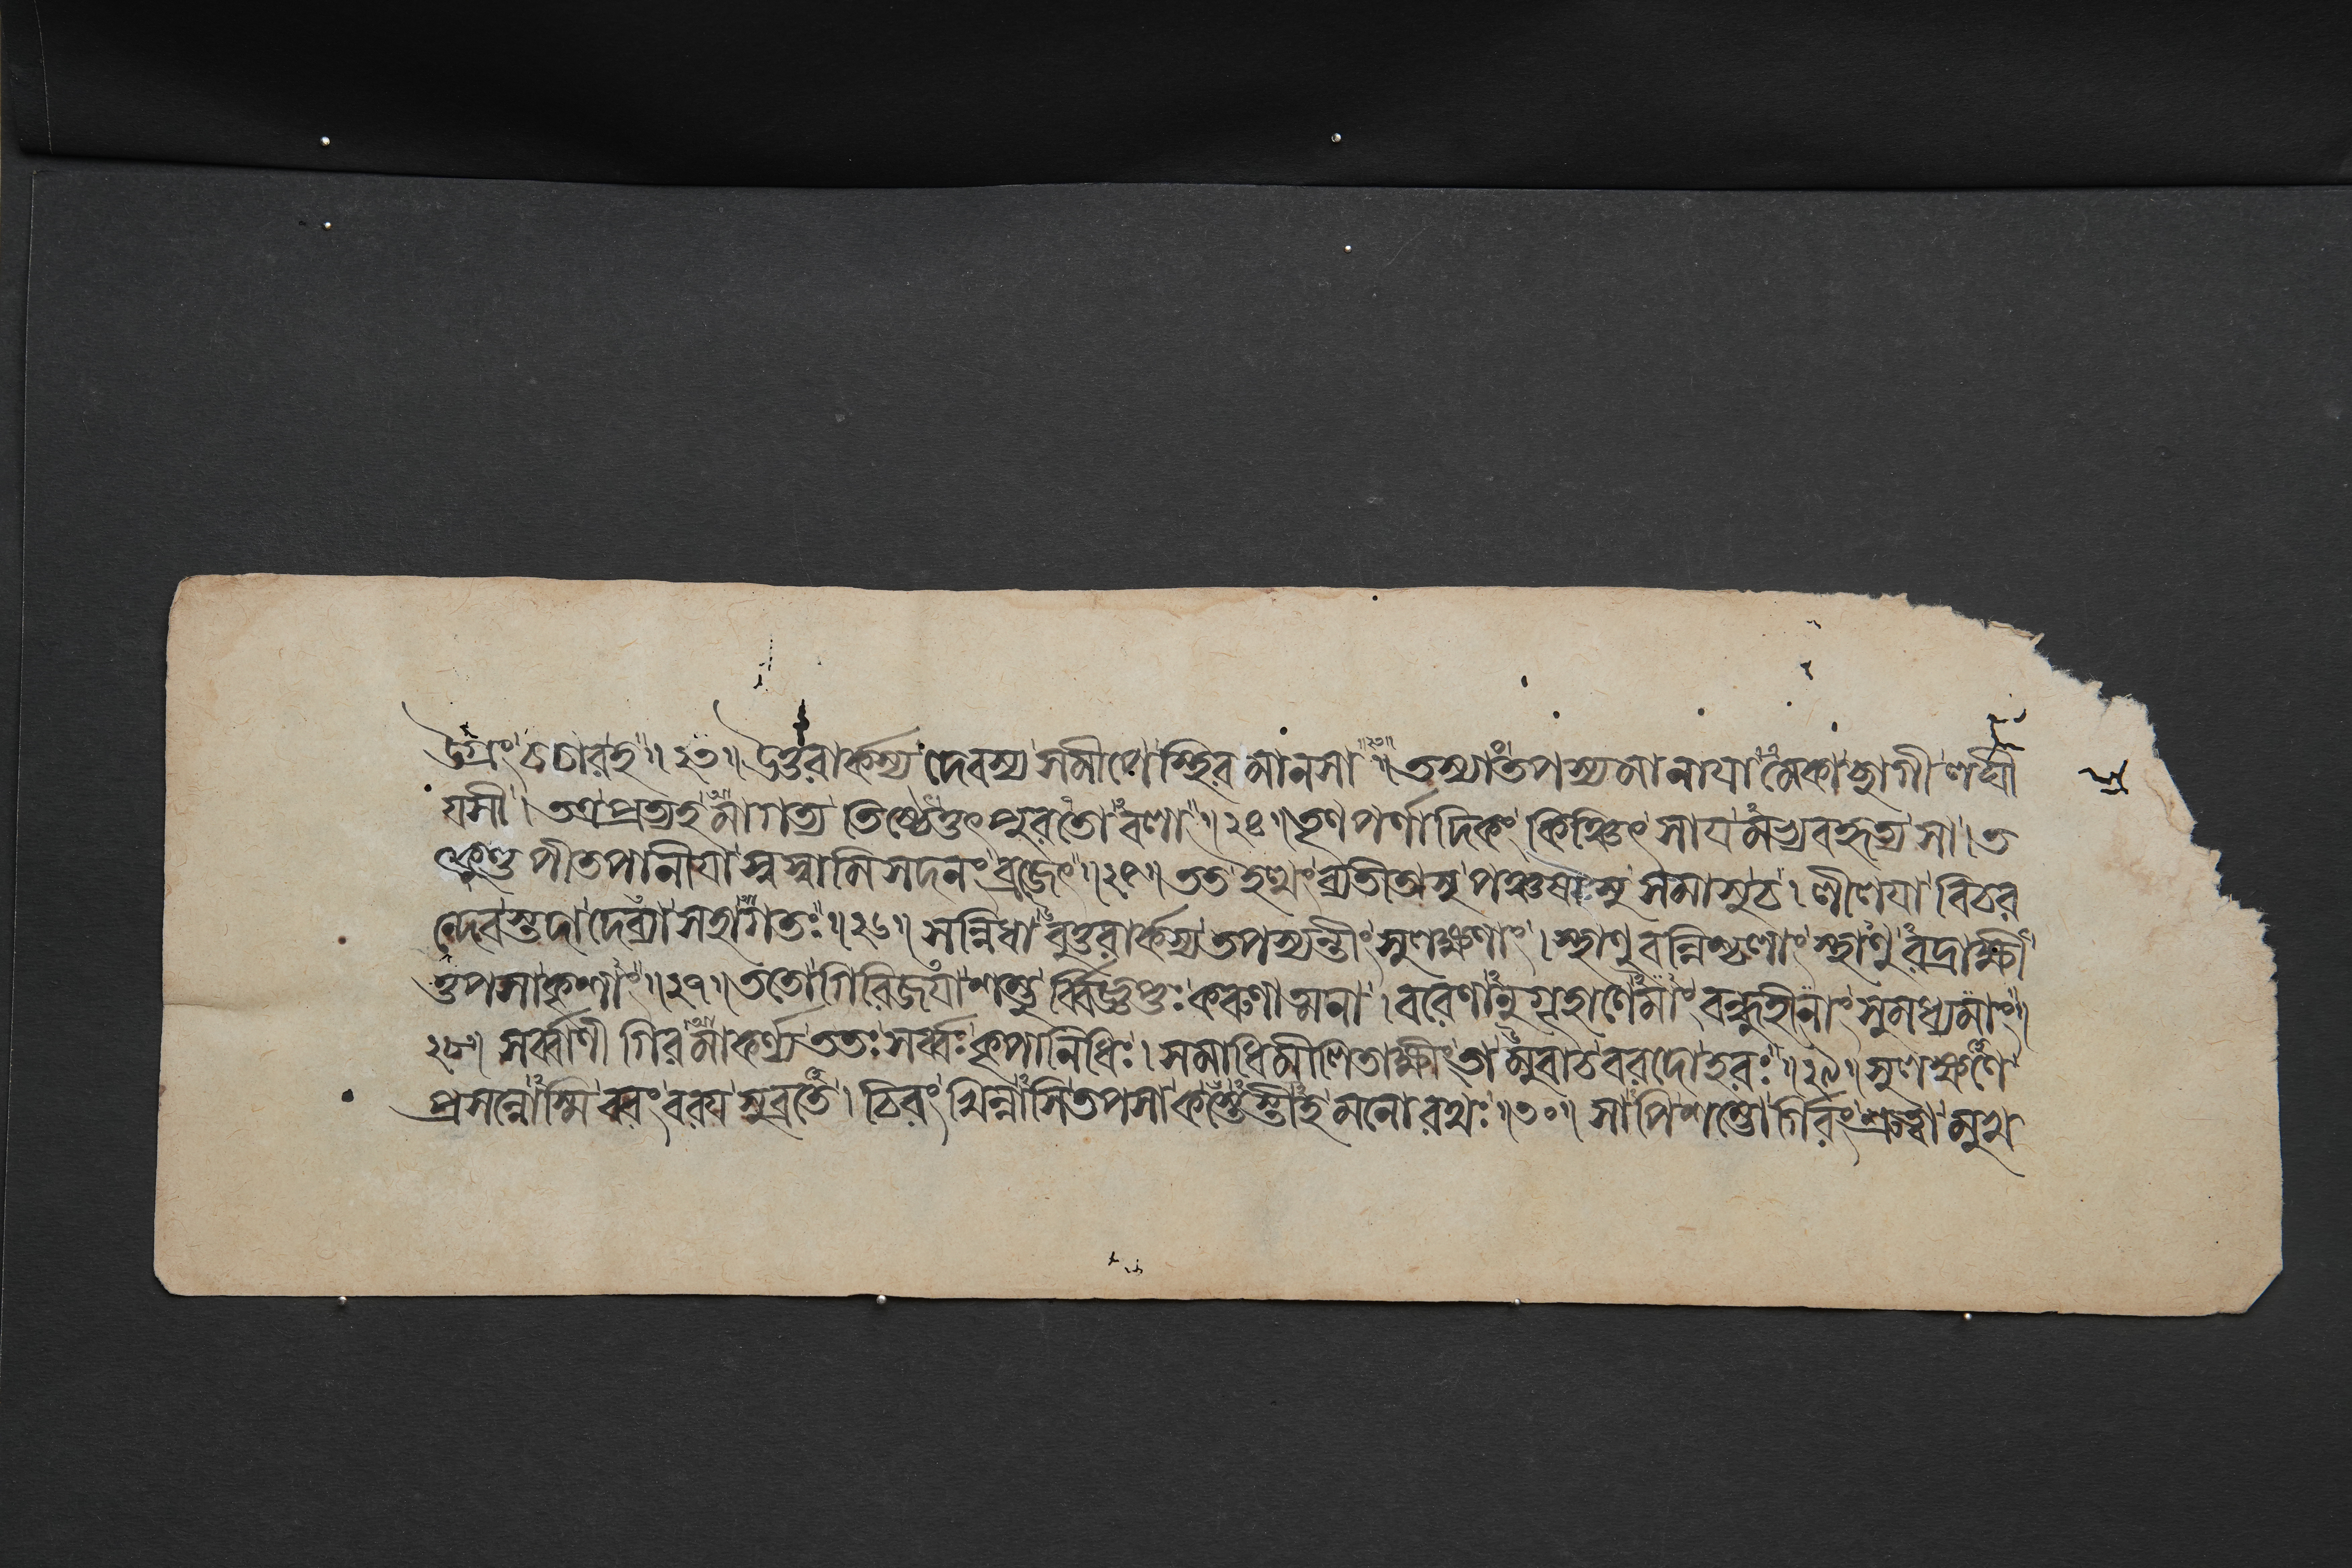 উগ্রং চচার হ ॥ ২৩ ॥ উত্তরার্কস্য দেবস্য সমীপে স্থির মানসা । তস্যাং তপস্যমানায়া মেকা ছাগী লঘী
যসী । তত্র প্রত্যহ মাগত্য তিষ্ঠেত্তৎ পুরতো চলা ॥ ২৪ ॥ তৃণ পর্ণাদিকং কিঞ্চিৎ সায মভ্যবহৃত্য সা । ত
ৎকুণ্ড পীতপানীযা স্বস্বামি সদনং ব্রজেৎ ॥ ২৫ ॥ তত ইত্থং ব্যতীতাসু পঞ্চষাসু সমাসু চ । লীলযা বিচর
ন্দেবস্তদা দেব্যা সহাগতঃ ॥ ২৬ ॥ সন্নিধা বুত্তরার্কস্য তপস্যন্তীং সুলক্ষণাং । স্থাণু বন্নিশ্চলাং স্থাণু রদ্রাক্ষী
ত্তপসা কৃশাং ॥ ২৭ ॥ ততো গিরিজযা শম্ভু র্ব্বিজ্ঞপ্তঃ করুণাত্মনা । বরেণানুগৃহাণেমাং বন্ধুহীনাং সুমধ্যমাং ॥
২৮ ॥ সর্ব্বাণী গির মাকর্ণ্য ততঃ সর্ব্বঃ কৃপানিধিঃ । সমাধিমীলিতাক্ষীং তা মুবাচ বরদো হরঃ ॥ ২৯ ॥ সুলক্ষণে
প্রসন্নোস্মি বরং বরয সুব্রতে । চিরং খিন্নাসি তপসা কস্তেস্তীহ মনোরথঃ ॥ ৩০ ॥ সাপি শম্ভো র্গিরং শ্রুত্বা মুখ